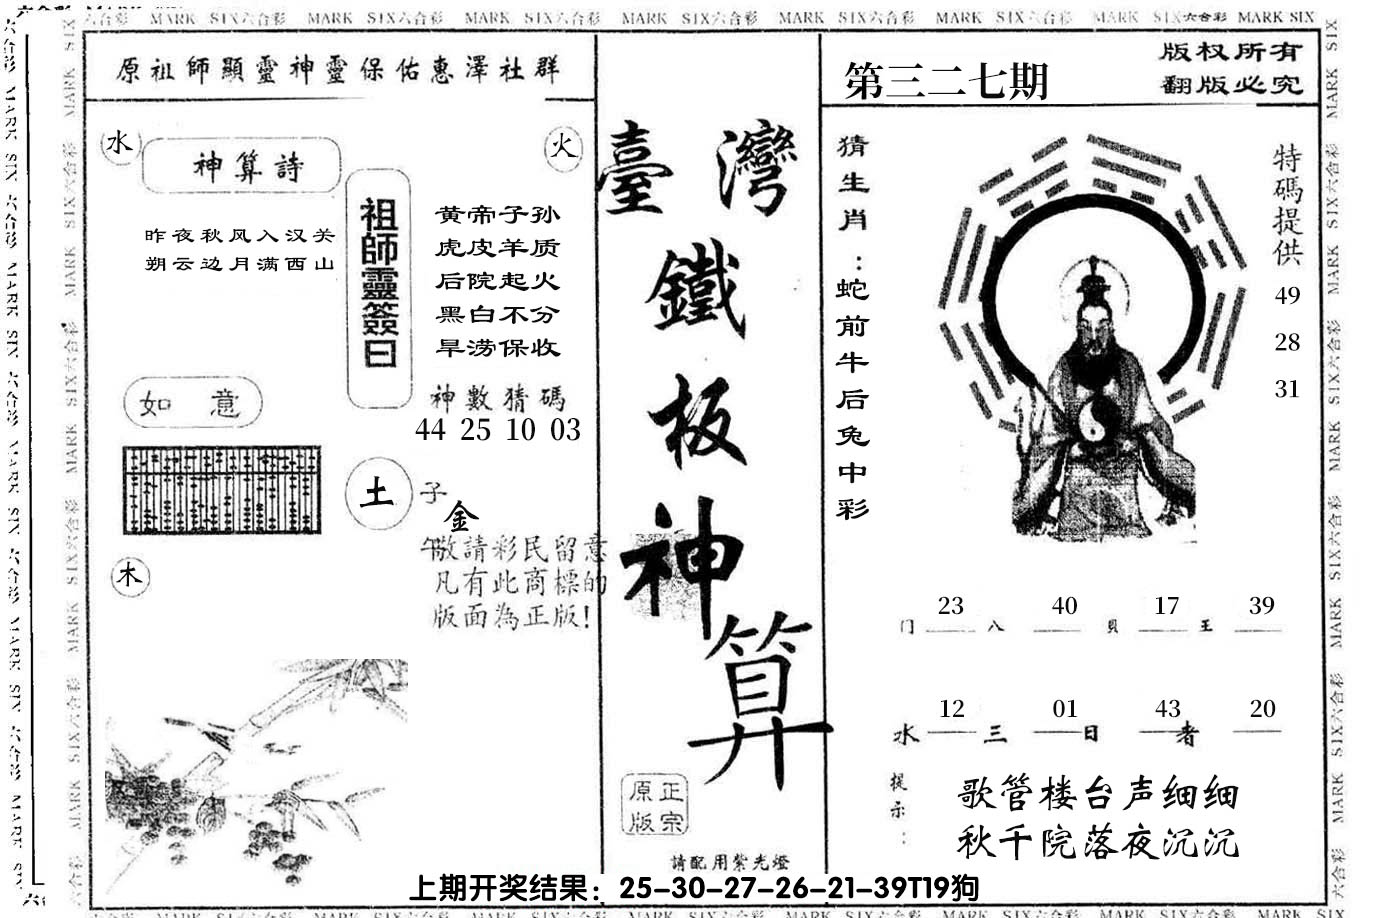 MARK SIX六合彩 MARK SIX六合彩 MARK SIX六合彩 MARK SIX六合彩 MARK SIX六合彩 MARK SIX六合彩 MARK SIX六合彩 MARK SIX
原祖師顯靈神靈保佑惠澤社群
第三二七期
版权所有
翻版必究
水
神算詩
火
昨夜秋风入汉关
朔云边月满西山
祖師靈簽曰
黄帝子孙
虎皮羊质
后院起火
黑白不分
旱涝保收
神數猜碼
44 25 10 03
如意
土
子
金
午
木
敬請彩民留意
凡有此商標的
版面為正版!
臺灣
鐵
板
神
算
正宗
原版
請配用紫光燈
猜生肖:蛇前牛后兔中彩
特碼提供
49
28
31
23 40 17 39
门 八 貝 王
12 01 43 20
水 三 日 者
提示:
歌管楼台声细细
秋千院落夜沉沉
上期开奖结果：25-30-27-26-21-39T19狗